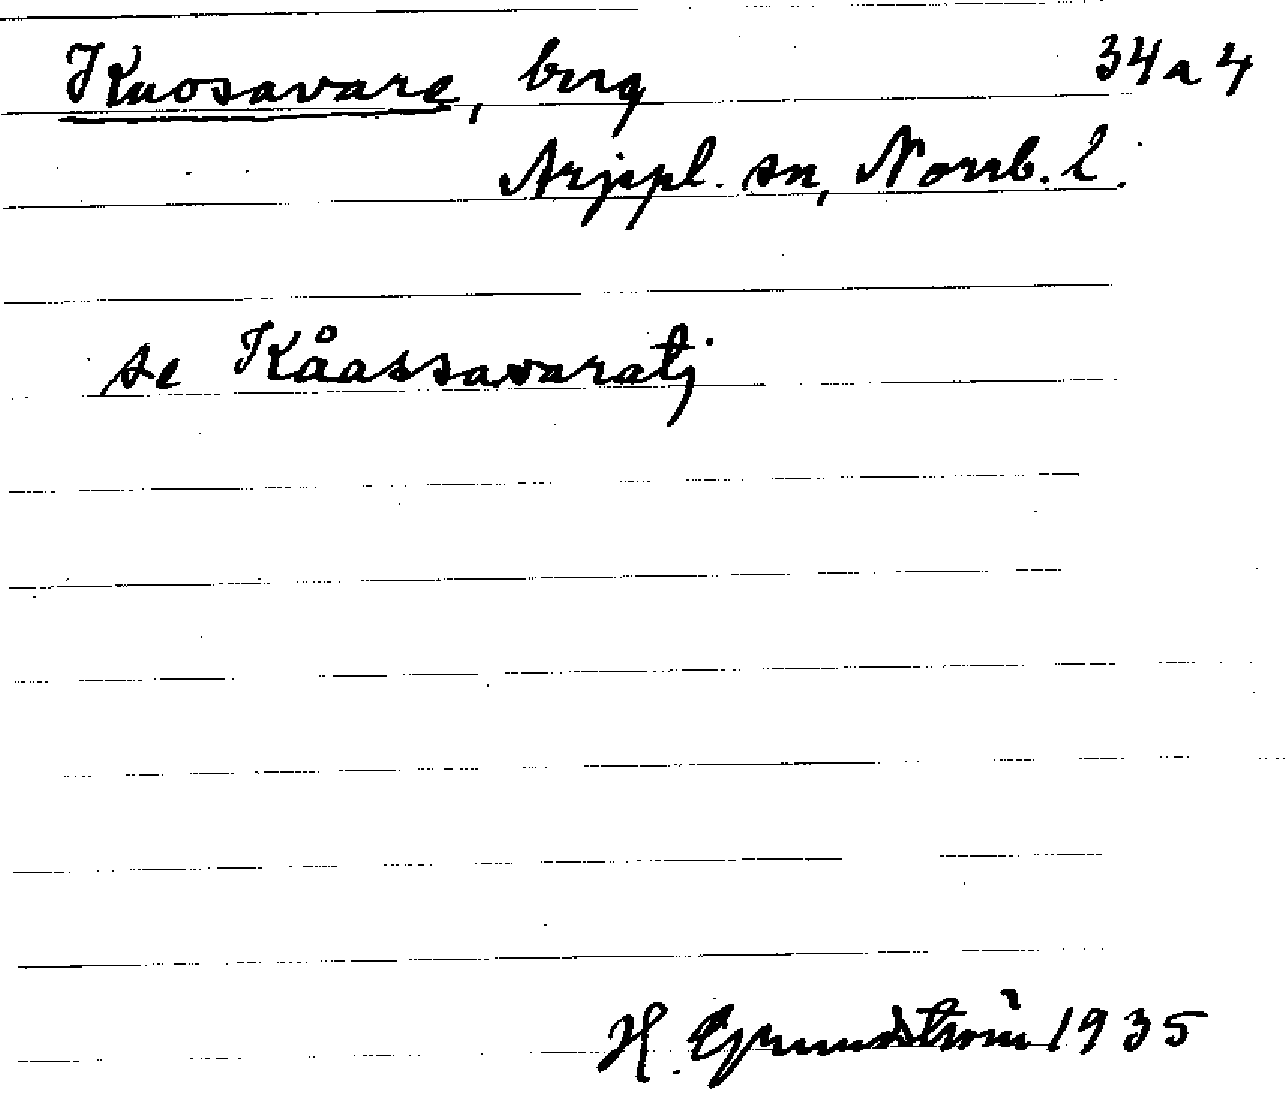 Kuosavare, berg 34 a 4
Arjepl. sn, Norrb. l.
se Kåassavaratj
H. Grundström 1935